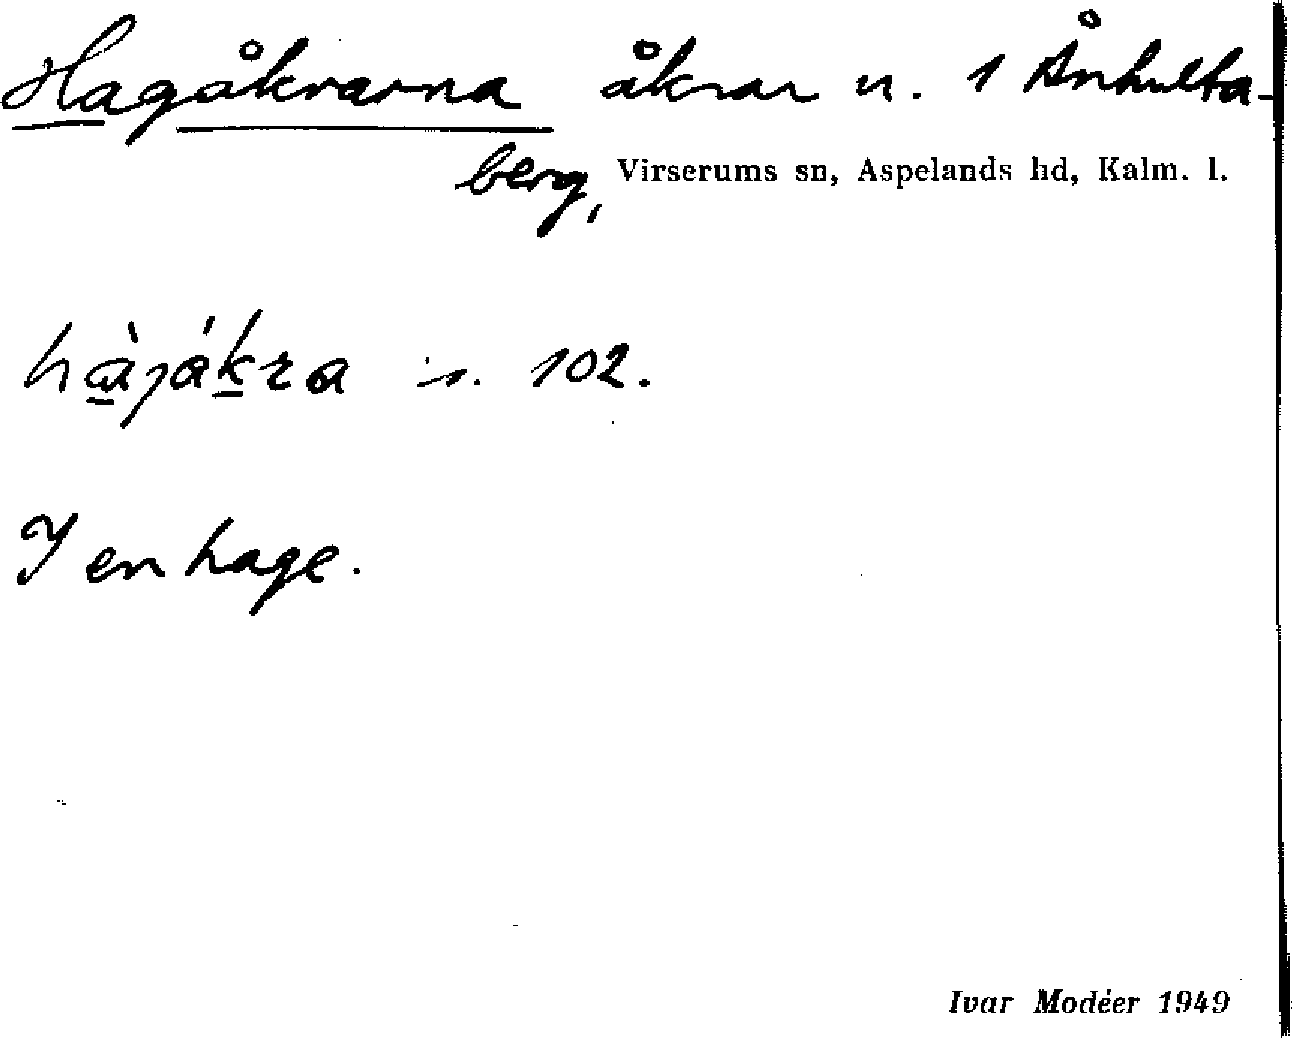 Hagåkrarna åkrar u. 1 Ånhulta-
berg, Virserums sn, Aspelands hd, Kalm. l.
hàjákra s. 102.
I en hage.
Ivar Modéer 1949